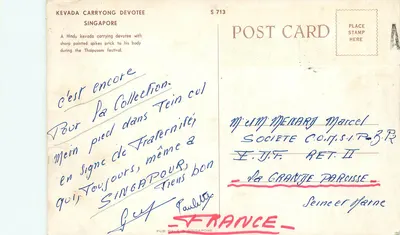 KEVADA CARRYONG DEVOTEE
SINGAPORE
A Hindu kevada carrying devotee with
sharp pointed spikes prick to his body
during the Thaipusam festival.
S 713
POST CARD
PLACE
STAMP
HERE
c'est encore
Pour la Collection.
Mein pied dans Tein col
en signe de Fraternité,
qui, Toujours, même a
SINGAPOUR,
Tiens bon
Guy Paulette
M & M MENARD Marcel
SOCIETE
RET. II
La GRANDE PAROISSE
Seine et Marne
FRANCE